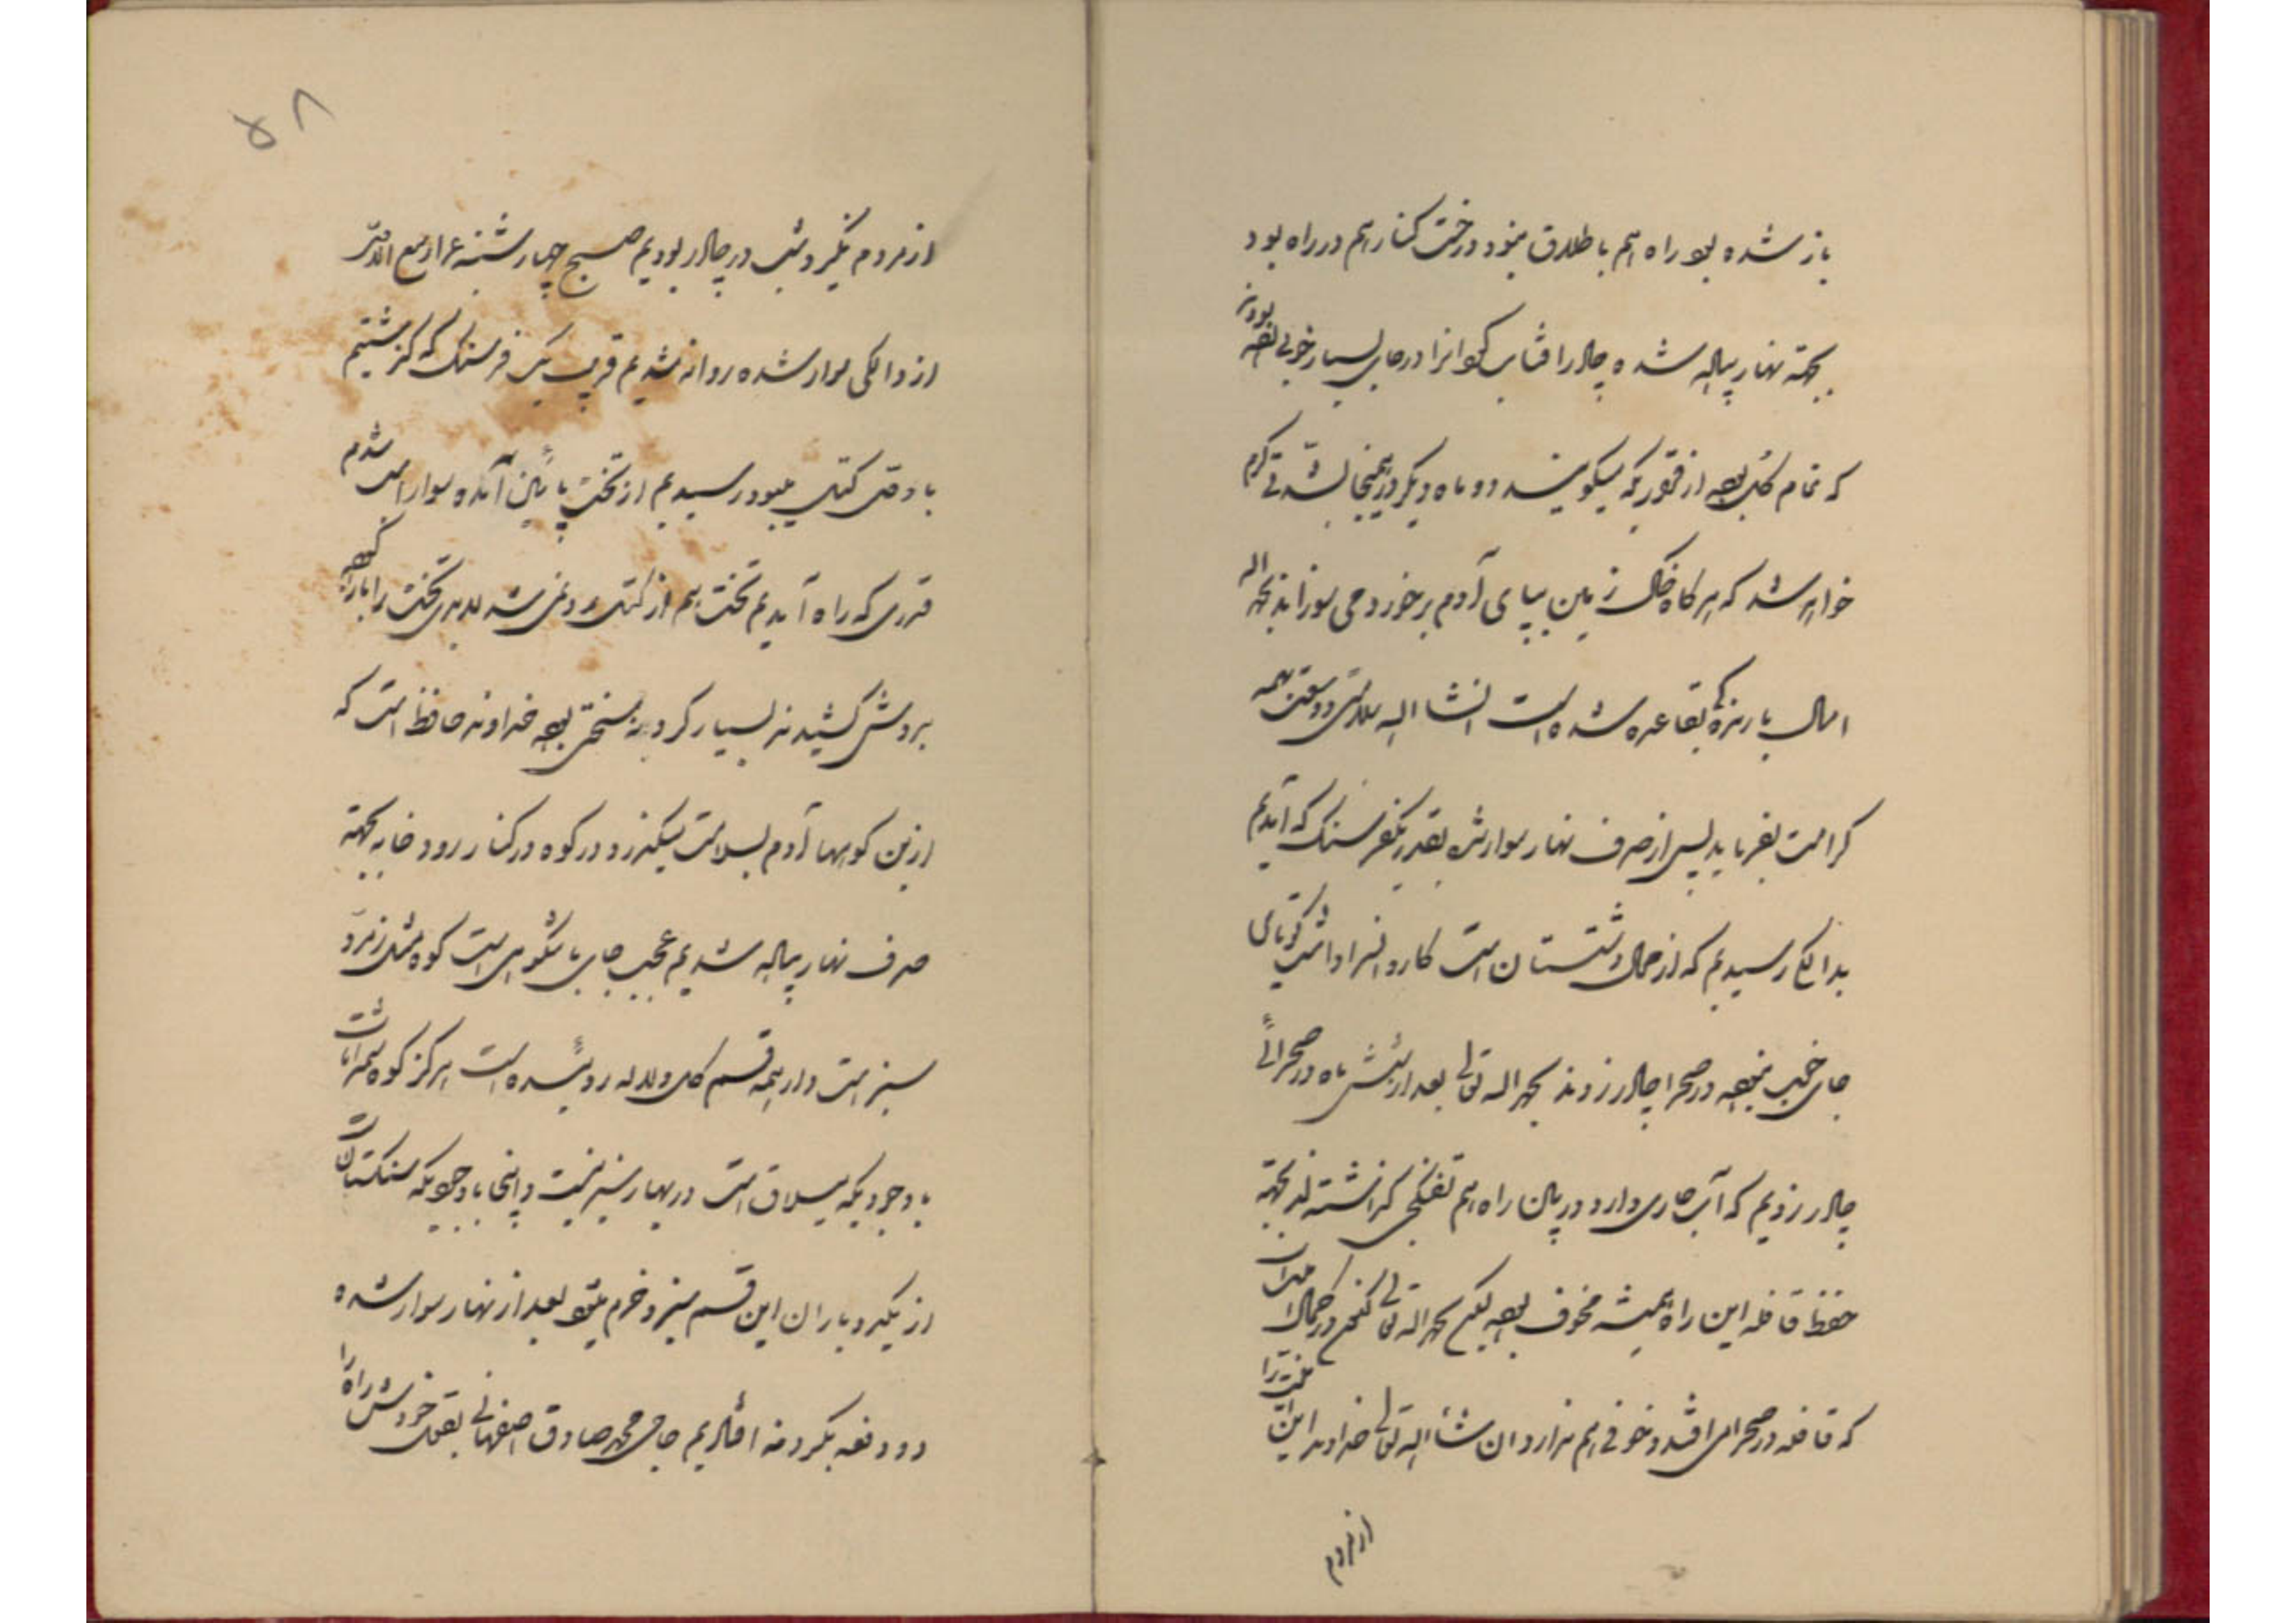 باز شده بود راه هم باطلاق نبود درخت کنار هم در راه بود
بجهة نهار پیاده شده چادر آفتاب گردانرا در جای بسیار خوبی زده بودند
که تمام گل بود از قراریکه میگویند دو ماه دیگر در همینجا بشدتی گرم
خواهد شد که هرگاه خاک زمین بپای آدم برخورد می سوزاند بحمد اله
امسال بارندگی بقاعده شده است انشا اله سلامتی و وسعت بهمه
کرامت بفرماید پس از صرف نهار سوار شده بقدر یکفرسنگ که آمدیم
بدالکی رسیدیم که از محال دشتستان است کاروانسرا داشت گویا
جای خوب نبود در صحرا چادر زدند بحمد اله تعالی بعد از شش ماه در صحرائی
چادر زدیم که آب جاری دارد در میان راه هم تفنگچی گذاشته اند بجهة
حفظ قافله این راه همیشه مخوف بود لیکن بحمد اله تعالی
که قافله در صحرا می افتد و خوفی هم ندارد ان شاء اله تعالی خداوند این امنیت را
از مردم
۵۸
از مردم نگیرد شب در چادر بودیم صبح چهارشنبه ربیع الثانی
از دالکی سوار شده روانه شدیم قریب یک فرسنگ که گذشتیم
کتل رسیدیم از تخت پائین آمده سوار اسب شدم
قدری که راه آمدیم تخت هم از کتل رد نمی شد تخت را
بدوش کشیدند بسیار گردنه سختی بود خداوند حافظ است که
ازین کوهها آدم بسلامت میگذرد در کوه در کنار رودخانه بجهة
صرف نهار پیاده شدیم عجب جای باشکوهی است کوه مثل زمرد
سبز است و از همه قسم گل و لاله روئیده است هرگز کوه
با وجودیکه ییلاق است در بهار سبز نیست و اینجا با وجودیکه سنگستان است
از یکدو باران این قسم سبز و خرم میشود بعد از نهار سوار شده
دو دفعه بگردنه افتادیم حاجی محمد صادق اصفهانی بقول خودش راه را